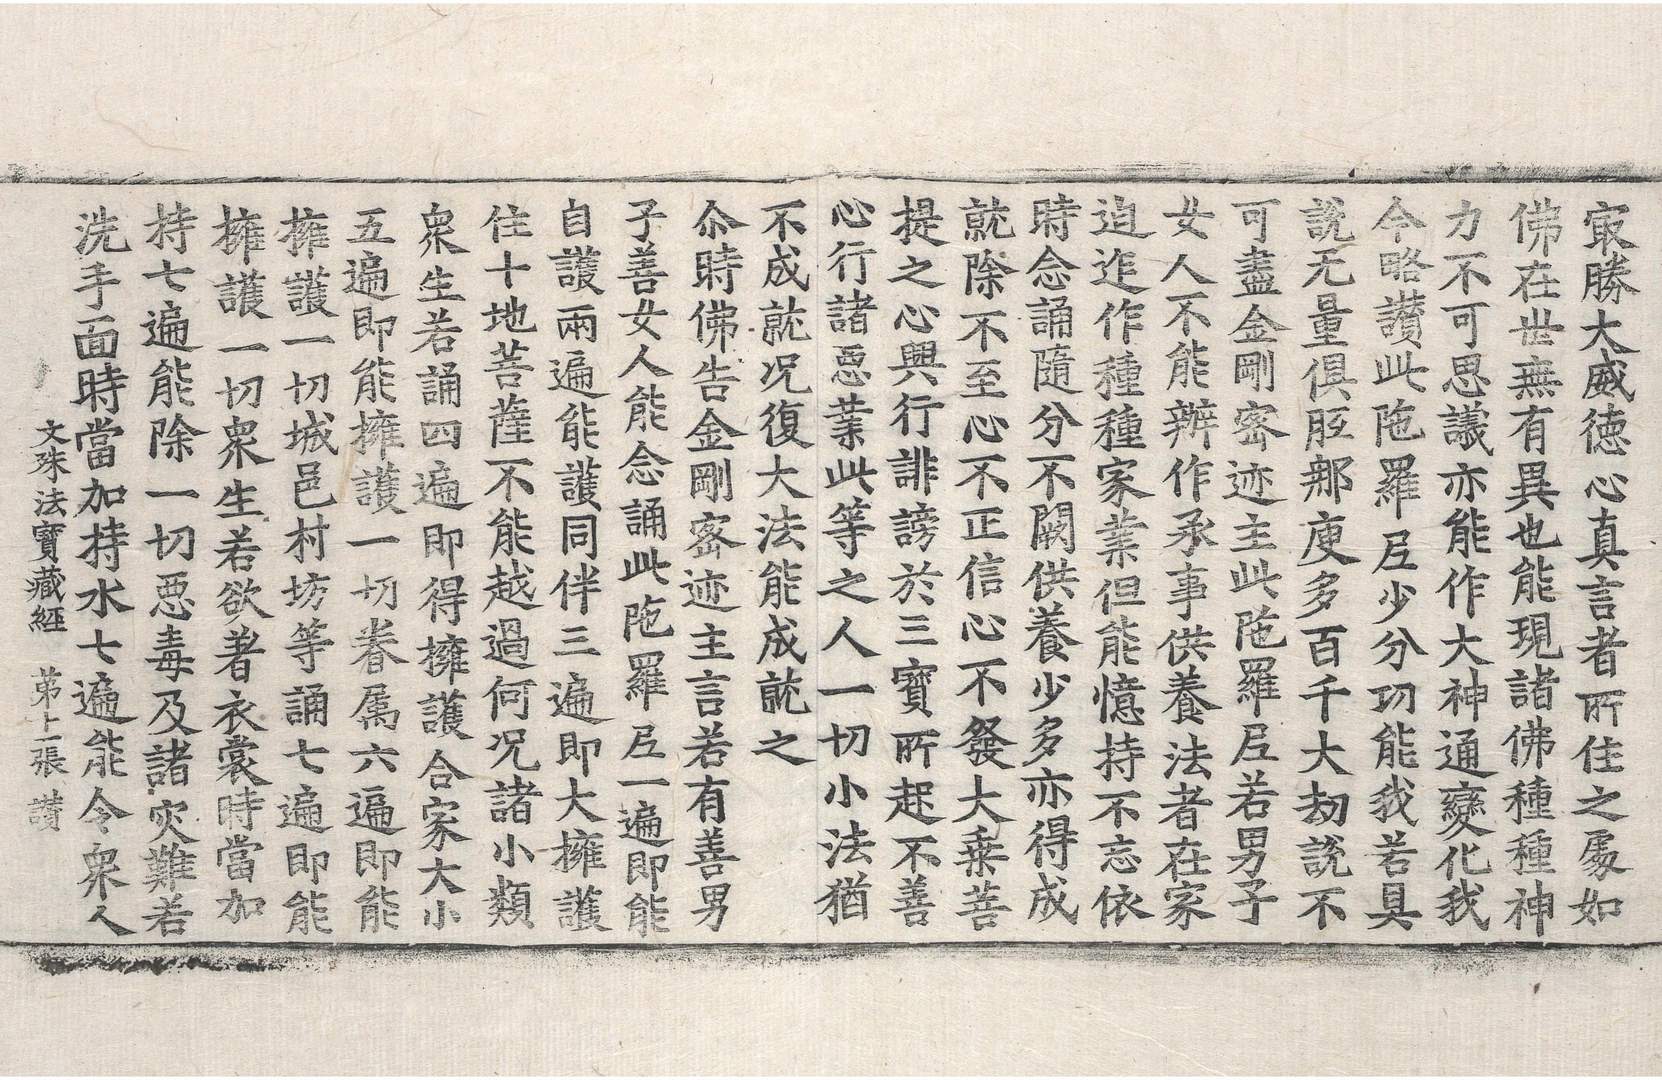 冣勝大威徳心真言者所住之處如
佛在世無有異也能現諸佛種種神
力不可思議亦能作大神通變化我
今略讃此陁羅尼少分功能我若具
說无量俱胝那庾多百千大劫說不
可盡金剛密迹主此陁羅尼若男子
女人不能辦作承事供養法者在家
迫迮作種種家業但能憶持不忘依
時念誦隨分不闕供養少多亦得成
就除不至心不正信心不發大乗菩
提之心興行誹謗於三寳所起不善
心行諸惡業此等之人一切小法猶
不成就况復大法能成就之
尒時佛告金剛密迹主言若有善男
子善女人能念誦此陁羅尼一遍即能
自護兩遍能護同伴三遍即大擁護
住十地菩薩不能越過何况諸小類
衆生若誦四遍即得擁護合家大小
五遍即能擁護一切眷属六遍即能
擁護一切城邑村坊等誦七遍即能
擁護一切衆生若欲著衣裳時當加
持七遍能除一切惡毒及諸灾難若
洗手面時當加持水七遍能令衆人
文殊法寳藏經 苐十一張 讃